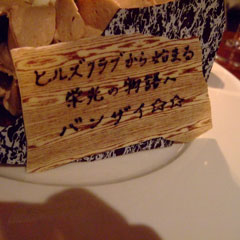 ヒルズクラブから始まる
栄光の物語へ
バンザイ☆☆